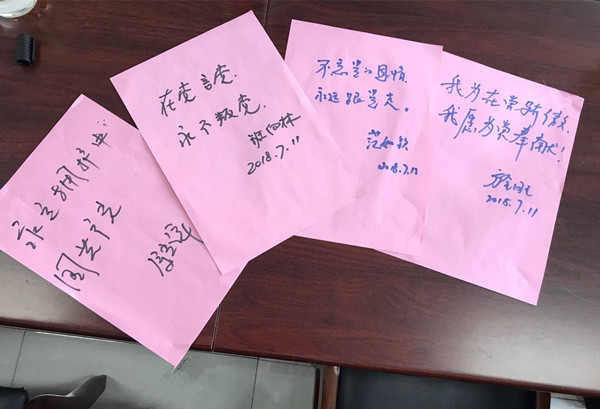 永远拥护中
国共产党
在党言党.
永不叛党.
2018.7.11
不忘党的恩情
永远跟党走。
2018.7.11
我为在党骄傲.
我愿为党奉献!
2018.7.11